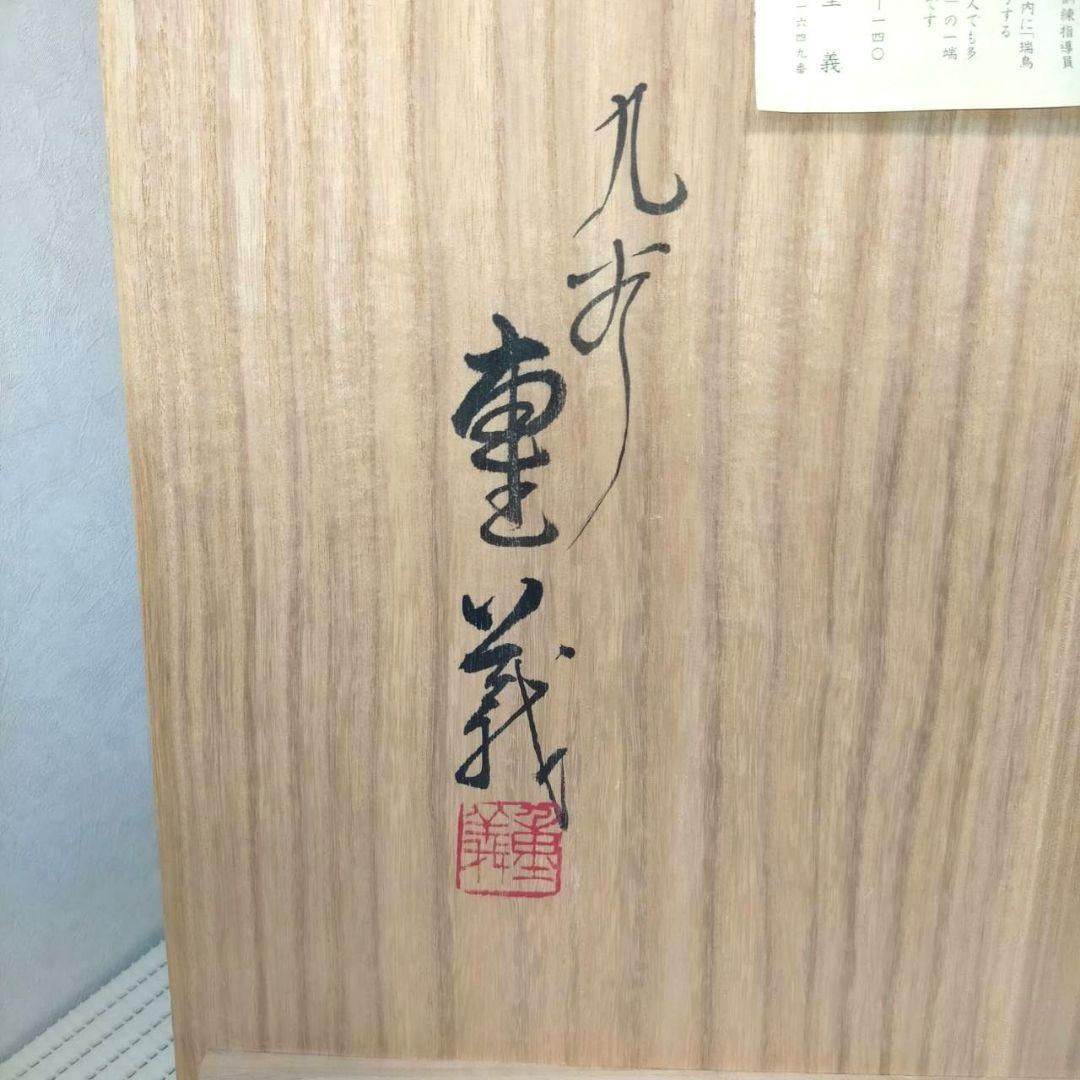 訓練指導員
内に「瑞鳥
する
人でも多
の一端
です
一一四〇
義
一六四九番
九谷
重義
重義